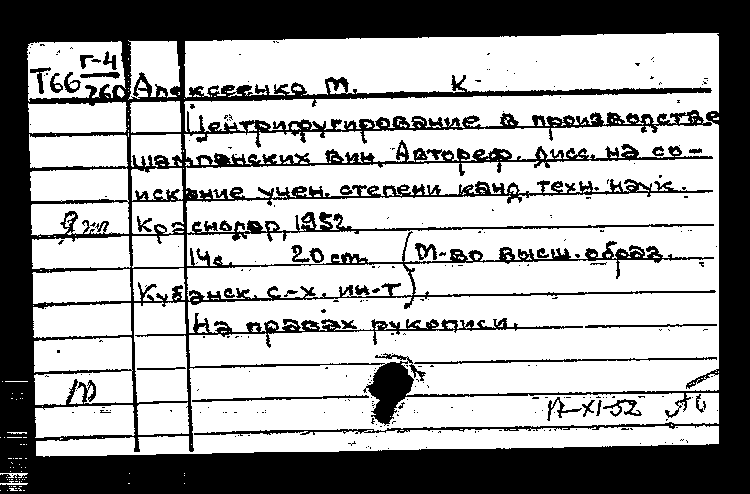 Г-4
Т66 260 Алексеенко, М. К
Центрифугирование в производстве
шампанских вин. Автореф. дисс. на со-
искание учен. степени канд. техн. наук.
Краснодар, 1952.
14с. 20 cm. (М-во высш. образ.
Кубанск. с.-х. ин-т).
На правах рукописи.
17-XI-52